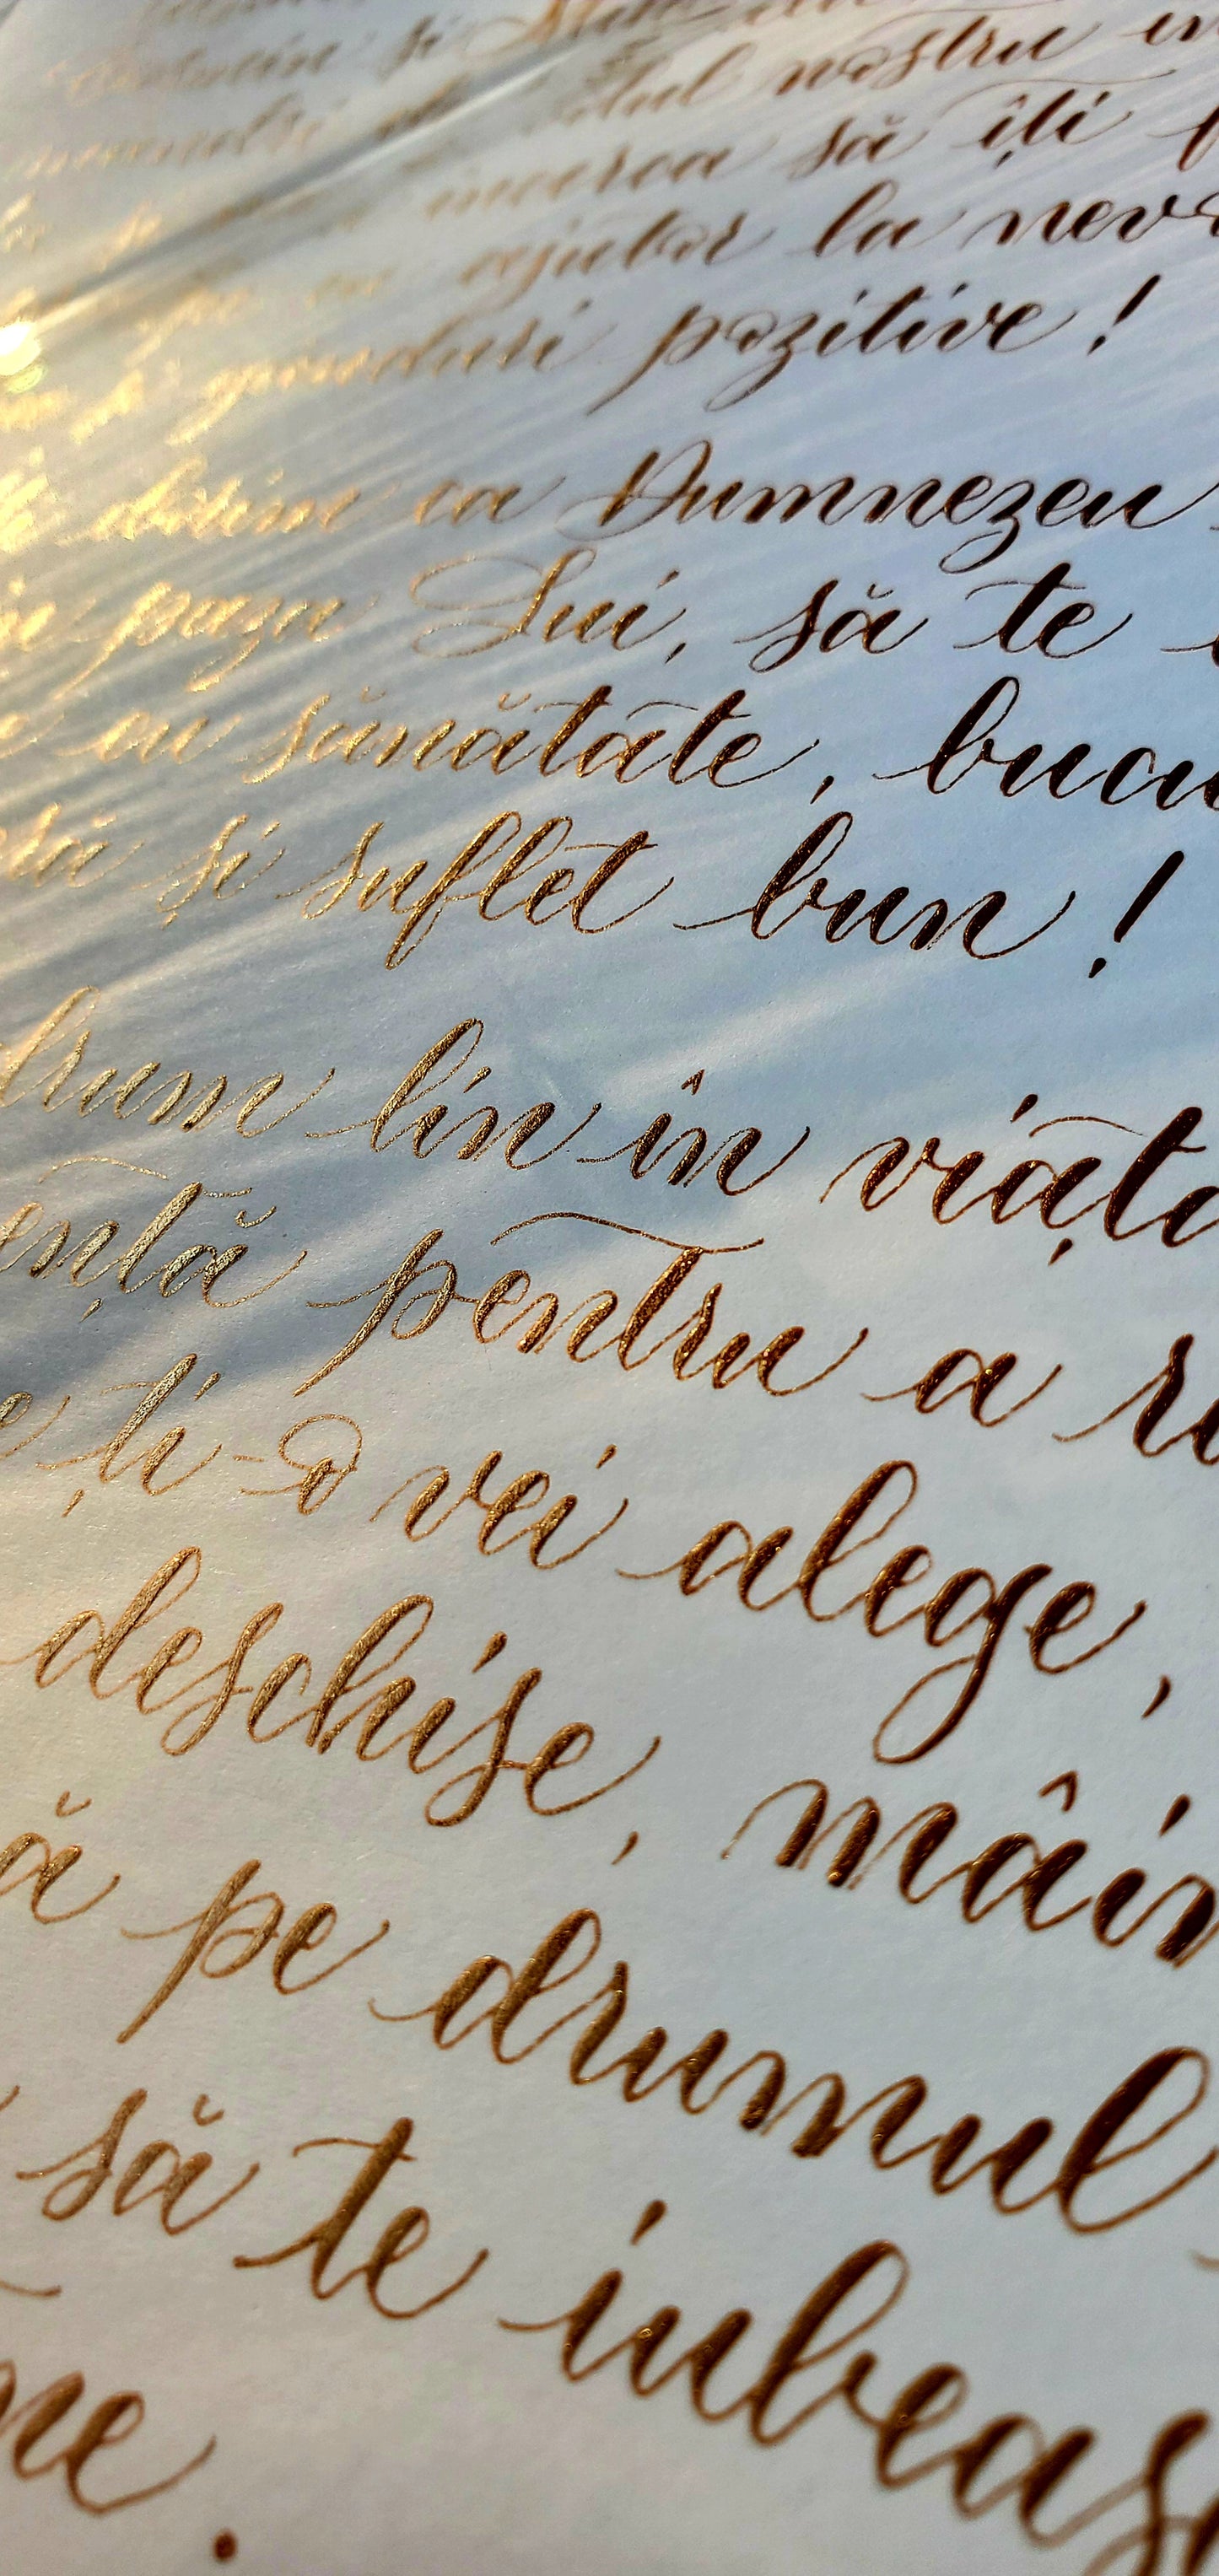 și
nostru în
încerca să îți
ajutor la nevo
gânduri pozitive!
ca Dumnezeu
paza Lui, să te
cu sănătate, bucu
să și suflet bun!
drum lin în viața
ență pentru a re
ți-o vei alege,
deschise, mâin
ă pe drumul
să te iubeas
ne.